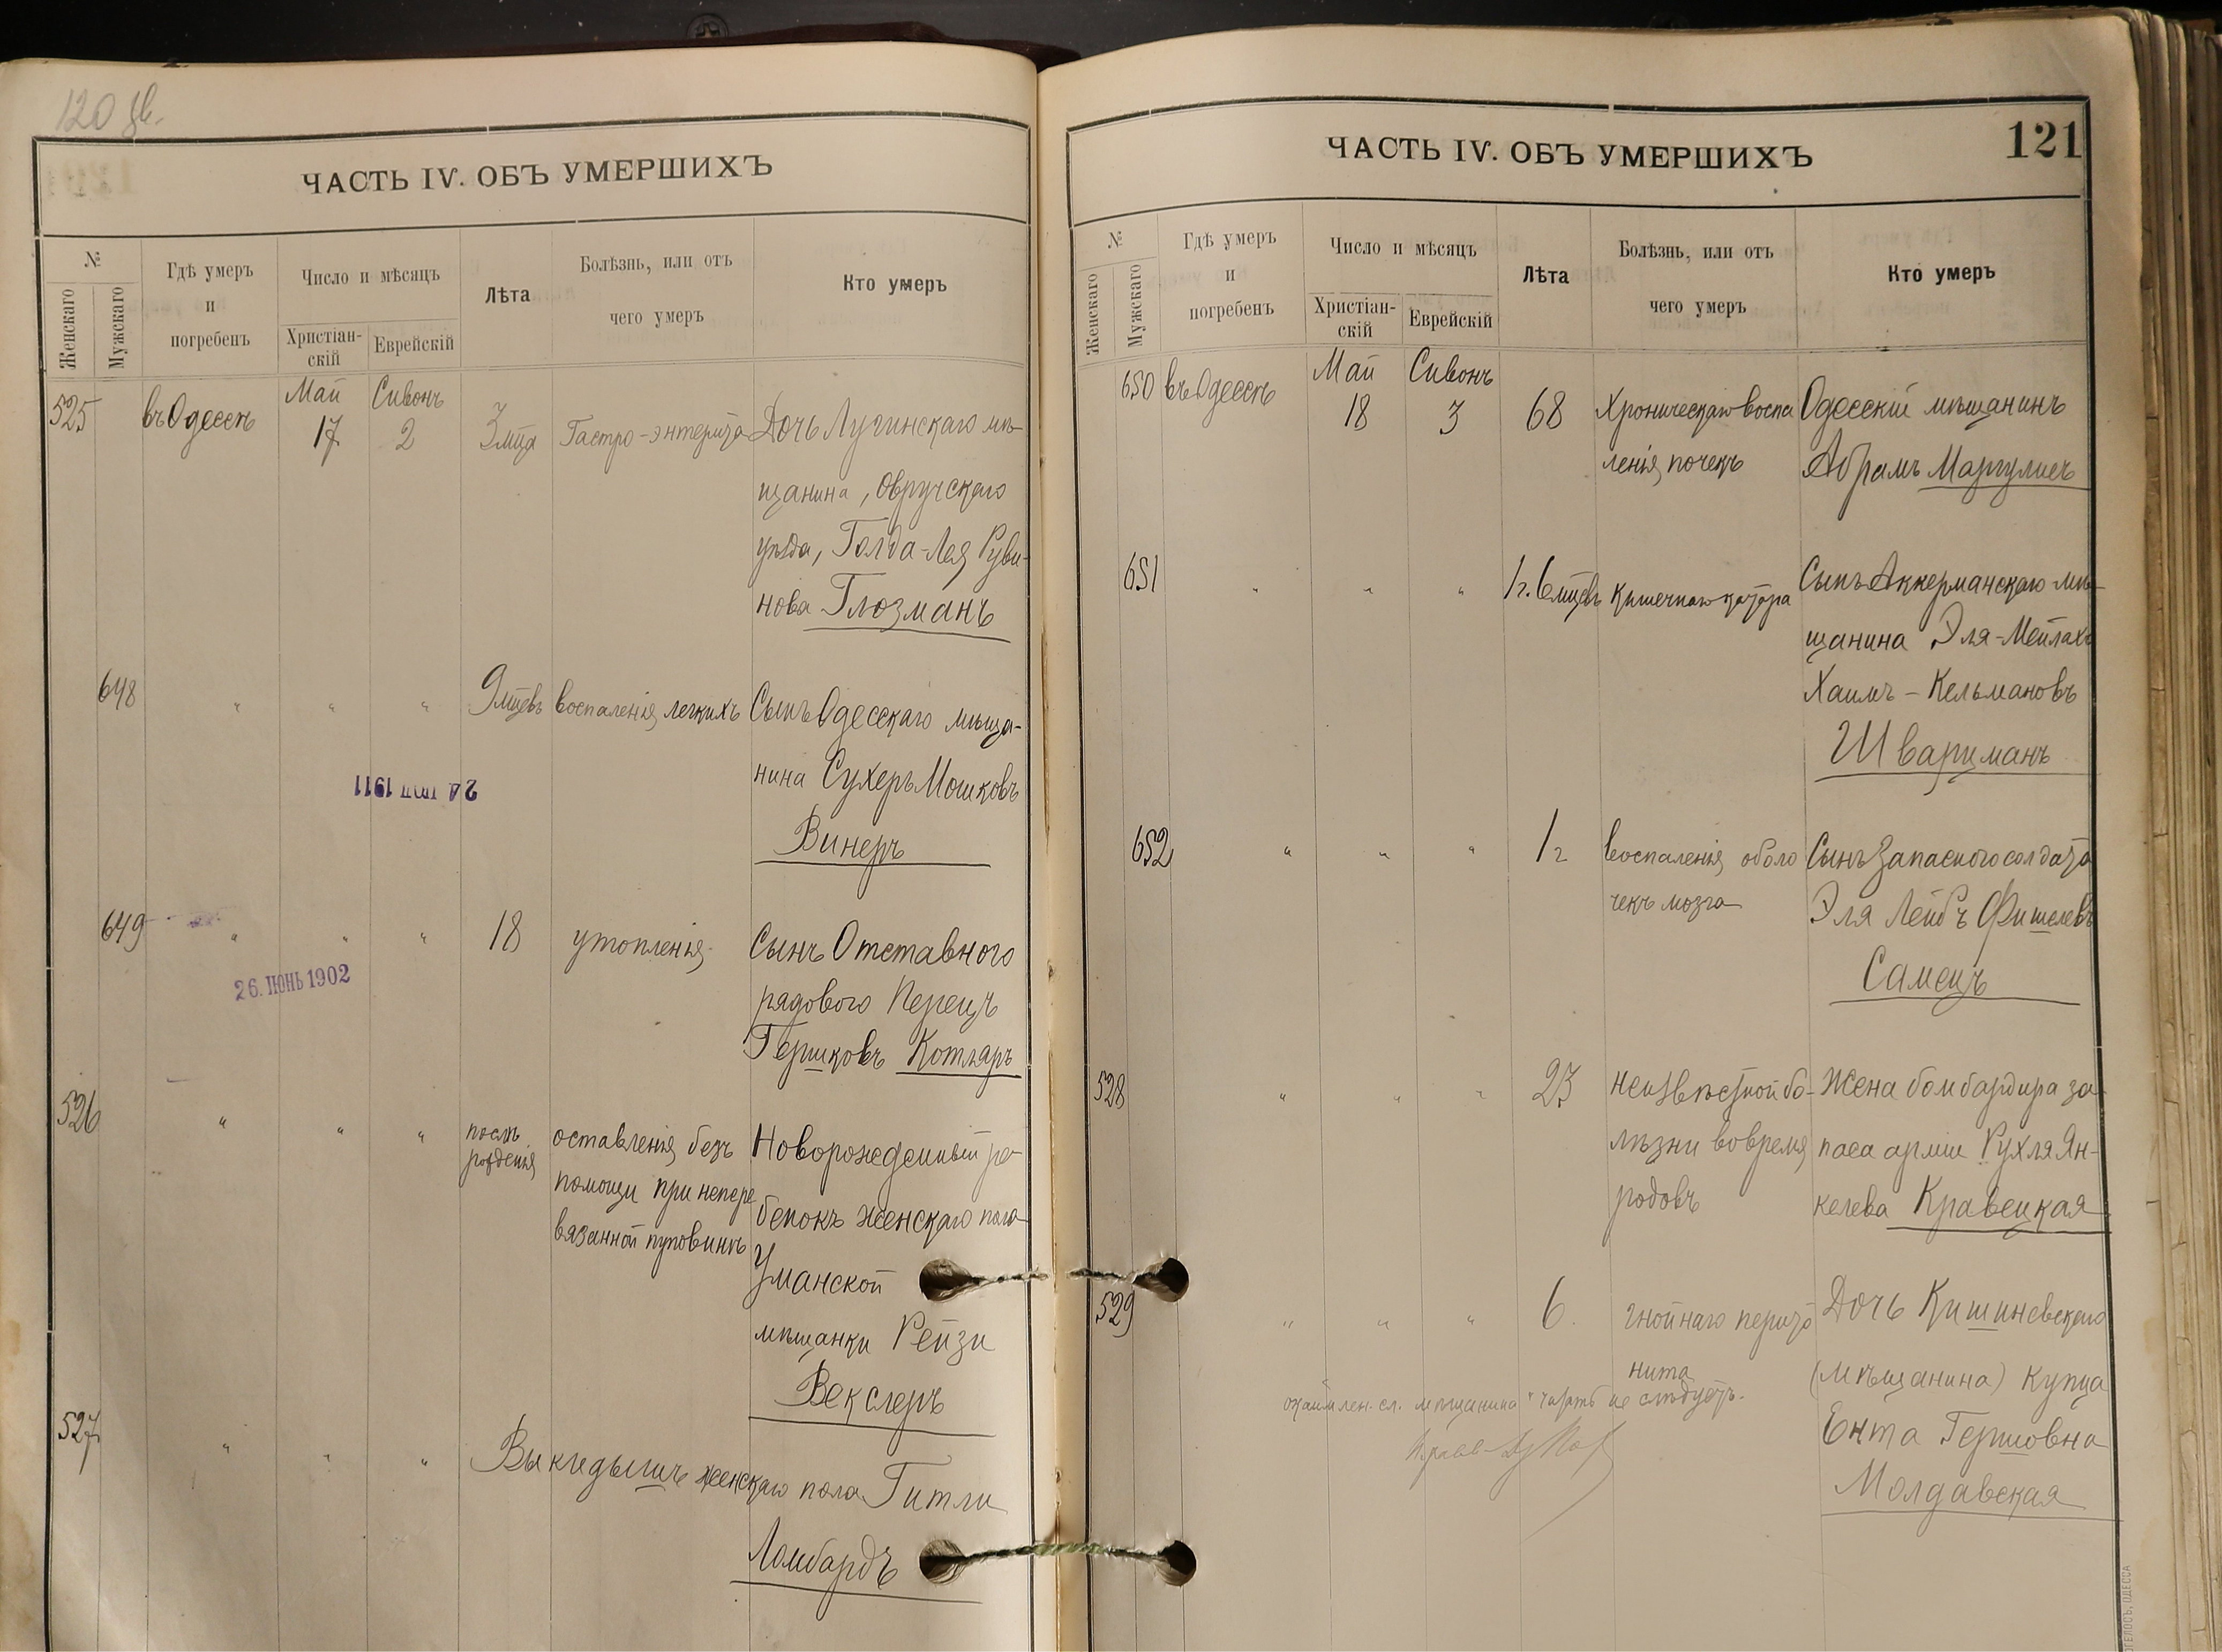 120 зв.
ЧАСТЬ IV. ОБЪ УМЕРШИХЪ
№
Женскаго
Мужскаго
Гдѣ умеръ
и
погребенъ
Число и мѣсяцъ
Христіан-
скій
Еврейскій
Лѣта
Болѣзнь, или отъ
чего умеръ
Кто умеръ
525
въ Одессѣ
Май
17
Сивонъ
2
3 мца
Гастро-энтерита
Дочь Лугинскаго мѣ-
щанина, Овручскаго
уѣзда, Голда-Лея Руви-
нова Глозманъ
648
" " "
9 мцевъ
воспаленія легкихъ
Сынъ Одесскаго мѣща-
нина Сухеръ Мошковъ
Винеръ
1911
649
" " "
18
утопленія
Сынъ Отставного
рядового Перецъ
Гершковъ Котляръ
26. ІЮНЬ 1902
526
" " "
послѣ
рожденія
оставленія безъ
помощи при непере
вязанной пуповинѣ
Новорожденный ре-
бенокъ женскаго пола
Уманской
мѣщанки Рейзи
Векслеръ
527
" " "
Выкидышъ женскаго пола Гитли
Ломбардъ
ЧАСТЬ IV. ОБЪ УМЕРШИХЪ
121
№
Женскаго
Мужскаго
Гдѣ умеръ
и
погребенъ
Число и мѣсяцъ
Христіан-
скій
Еврейскій
Лѣта
Болѣзнь, или отъ
чего умеръ
Кто умеръ
650
въ Одессѣ
Май
18
Сивонъ
3
68
Хроническаго воспа
ленія почекъ
Одесскій мѣщанинъ
Абрамъ Маргулисъ
651
" " "
1 г. 6 мцевъ
кишечнаго катара
Сынъ Аккерманскаго мѣ-
щанина Эля-Мейлахъ
Хаимъ-Кельмановъ
Шварцманъ
652
" " "
1 г
воспаленія оболо
чекъ мозга
Сынъ запасного солдата
Эля Лейбъ Фишелевъ
Самецъ
528
" " "
23
неизвѣстной бо-
лѣзни во время
родовъ
Жена бомбардира за-
паса арміи Рухля Ян-
келева Кравецкая
529
" " "
6.
гнойнаго перито
нита
Дочь Кишиневскаго
(мѣщанина) купца
Ента Гершовна
Молдавская
окаймлен. сл. "мѣщанина" читать не слѣдуетъ.